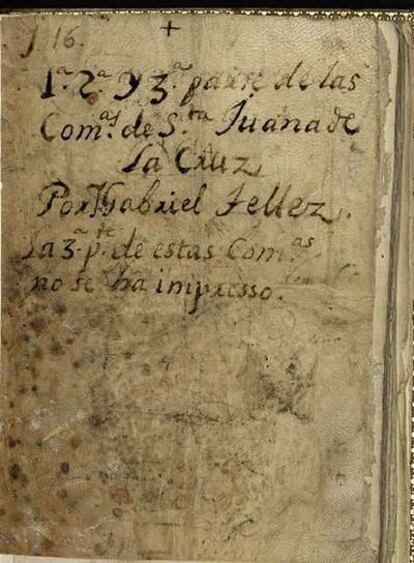 J 16. +
1.ª 2.ª y 3.ª parte de las
Com.ˢ de S.ᵗᵃ Juana de
la Cruz,
Por Gabriel Tellez.
La 3.ª p.ᵗᵉ de estas Com.ᵃˢ
no se ha impresso.